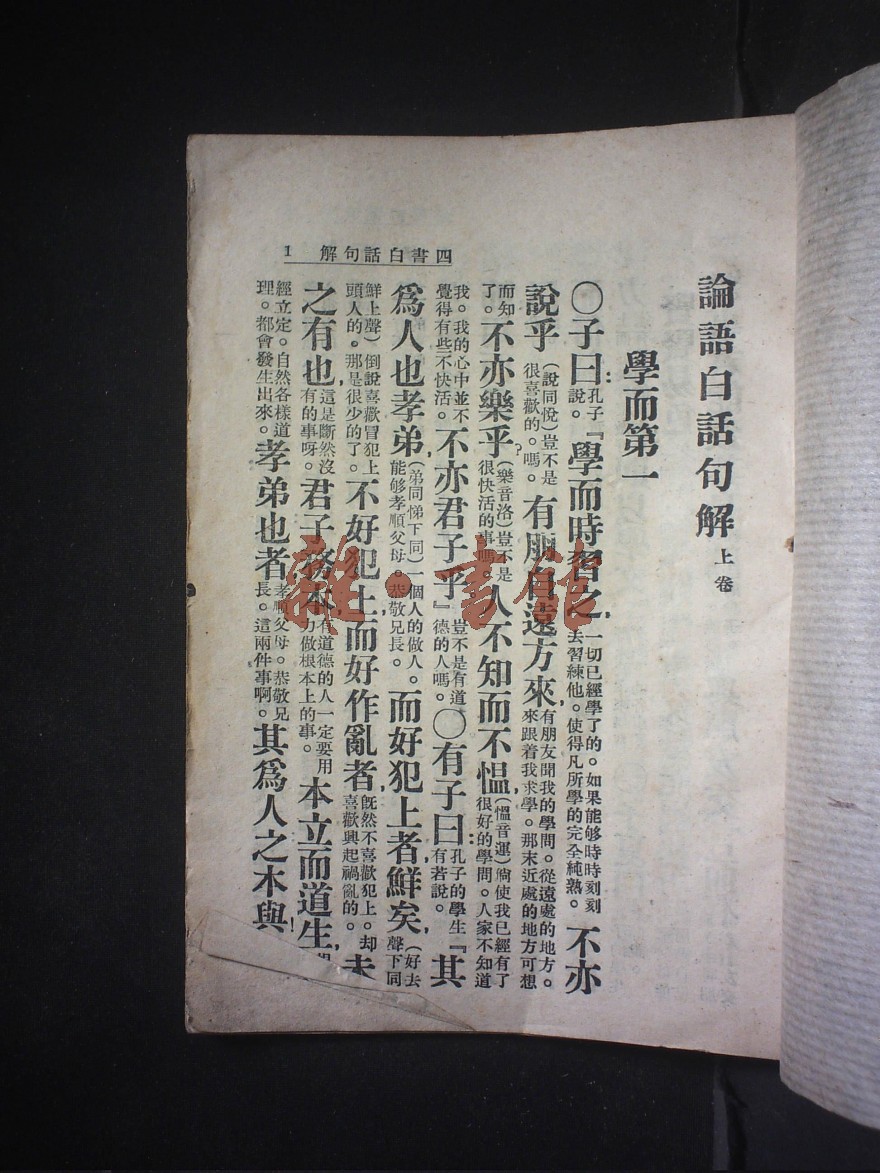 四書白話句解 1
論語白話句解 上卷
學而第一
〇子曰：孔子說。『學而時習之，一切已經學了的。如果能够時時刻刻去習練他。使得凡所學的完全純熟。不亦
說乎(說同悅)豈不是很喜歡的。嗎。有朋自遠方來，有朋友聞我的學問。從遠處的地方。來跟着我求學。那末近處的地方可想
而知了。不亦樂乎？(樂音洛)豈不是很快活的事嗎。人不知而不慍，(慍音運)倘使我已經有了很好的學問。人家不知道
我。我的心中並不覺得有些不快活。不亦君子乎』豈不是有道德的人嗎。〇有子曰：孔子的學生有若說。『其
爲人也孝弟，(弟同悌下同)一個人的做人。能够孝順父母。恭敬兄長。而好犯上者鮮矣，(好去聲下同
鮮上聲)倒說喜歡冒犯上頭人的。那是很少的了。不好犯上而好作亂者，既然不喜歡犯上。却喜歡興起禍亂的。未
之有也，這是斷然沒有的事呀。君子務本，有道德的人一定要用力做根本上的事。本立而道生，
經立定。自然各樣道理。都會發生出來。孝弟也者，孝順父母。恭敬兄長。這兩件事啊。其爲人之木與！
雜·書館